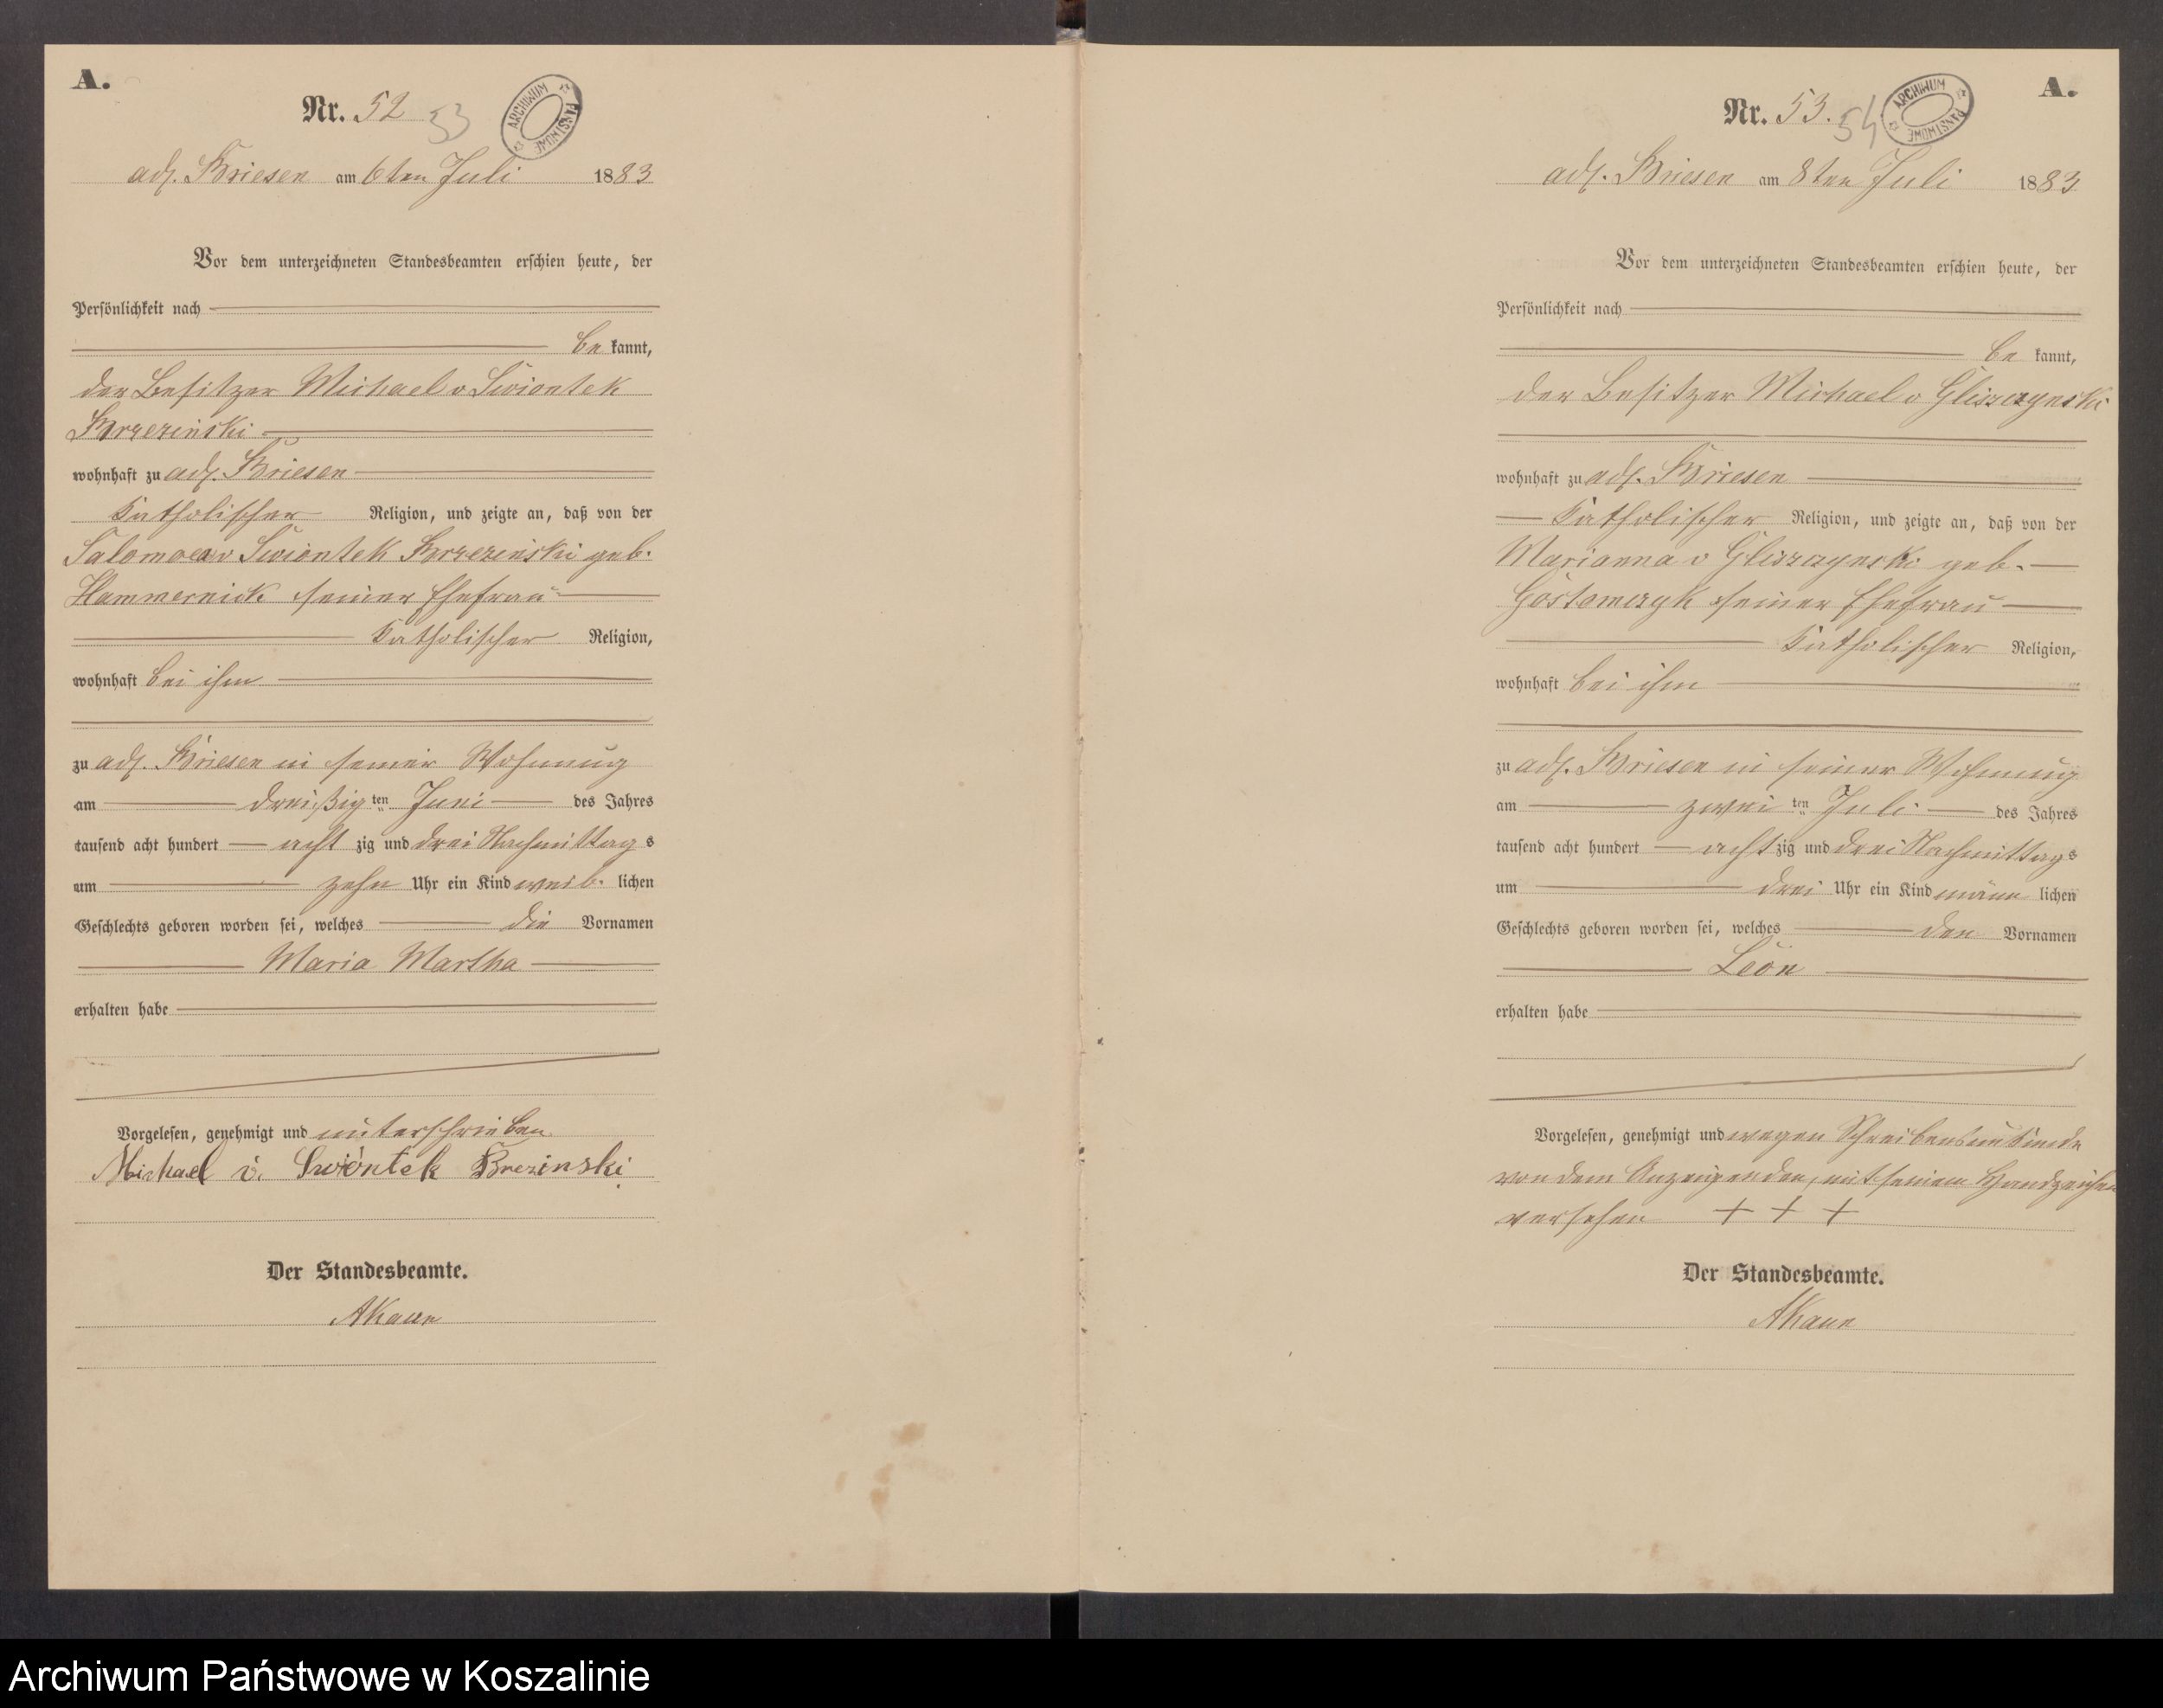 A.
Nr. 52 53
ARCHIWUM PAŃSTWOWE
adl. Briesen am 6ten Juli 1883
Vor dem unterzeichneten Standesbeamten erschien heute, der
Persönlichkeit nach
be kannt,
der Besitzer Michael v Swiontek
Brzezinski
wohnhaft zu adl. Briesen
katholischer Religion, und zeigte an, daß von der
Salomea v Swiontek Brzezinski geb.
Hammernick seiner Ehefrau
katholischer Religion,
wohnhaft bei ihm
zu adl. Briesen in seiner Wohnung
am dreißig ten Juni des Jahres
tausend acht hundert acht zig und drei Nachmittag s
um zehn Uhr ein Kind weib. lichen
Geschlechts geboren worden sei, welches die Vornamen
Maria Martha
erhalten habe
Vorgelesen, genehmigt und unterschrieben
Michael v. Swiontek Brezinski
Der Standesbeamte.
AKaun
A.
Nr. 53. 54
ARCHIWUM PAŃSTWOWE
adl. Briesen am 8ten Juli 1883
Vor dem unterzeichneten Standesbeamten erschien heute, der
Persönlichkeit nach
be kannt,
der Besitzer Michael v Gliszczynski
wohnhaft zu adl. Briesen
katholischer Religion, und zeigte an, daß von der
Marianna v Gliszczynski geb.
Gostomczyk seiner Ehefrau
katholischer Religion,
wohnhaft bei ihm
zu adl. Briesen in seiner Wohnung
am zwei ten Juli des Jahres
tausend acht hundert acht zig und drei Nachmittag s
um drei Uhr ein Kind männ lichen
Geschlechts geboren worden sei, welches den Vornamen
Leon
erhalten habe
Vorgelesen, genehmigt und wegen Schreibensunkunde
von dem Anzeigenden, mit seinem Handzeichen
versehen + + +
Der Standesbeamte.
AKaun
Archiwum Państwowe w Koszalinie